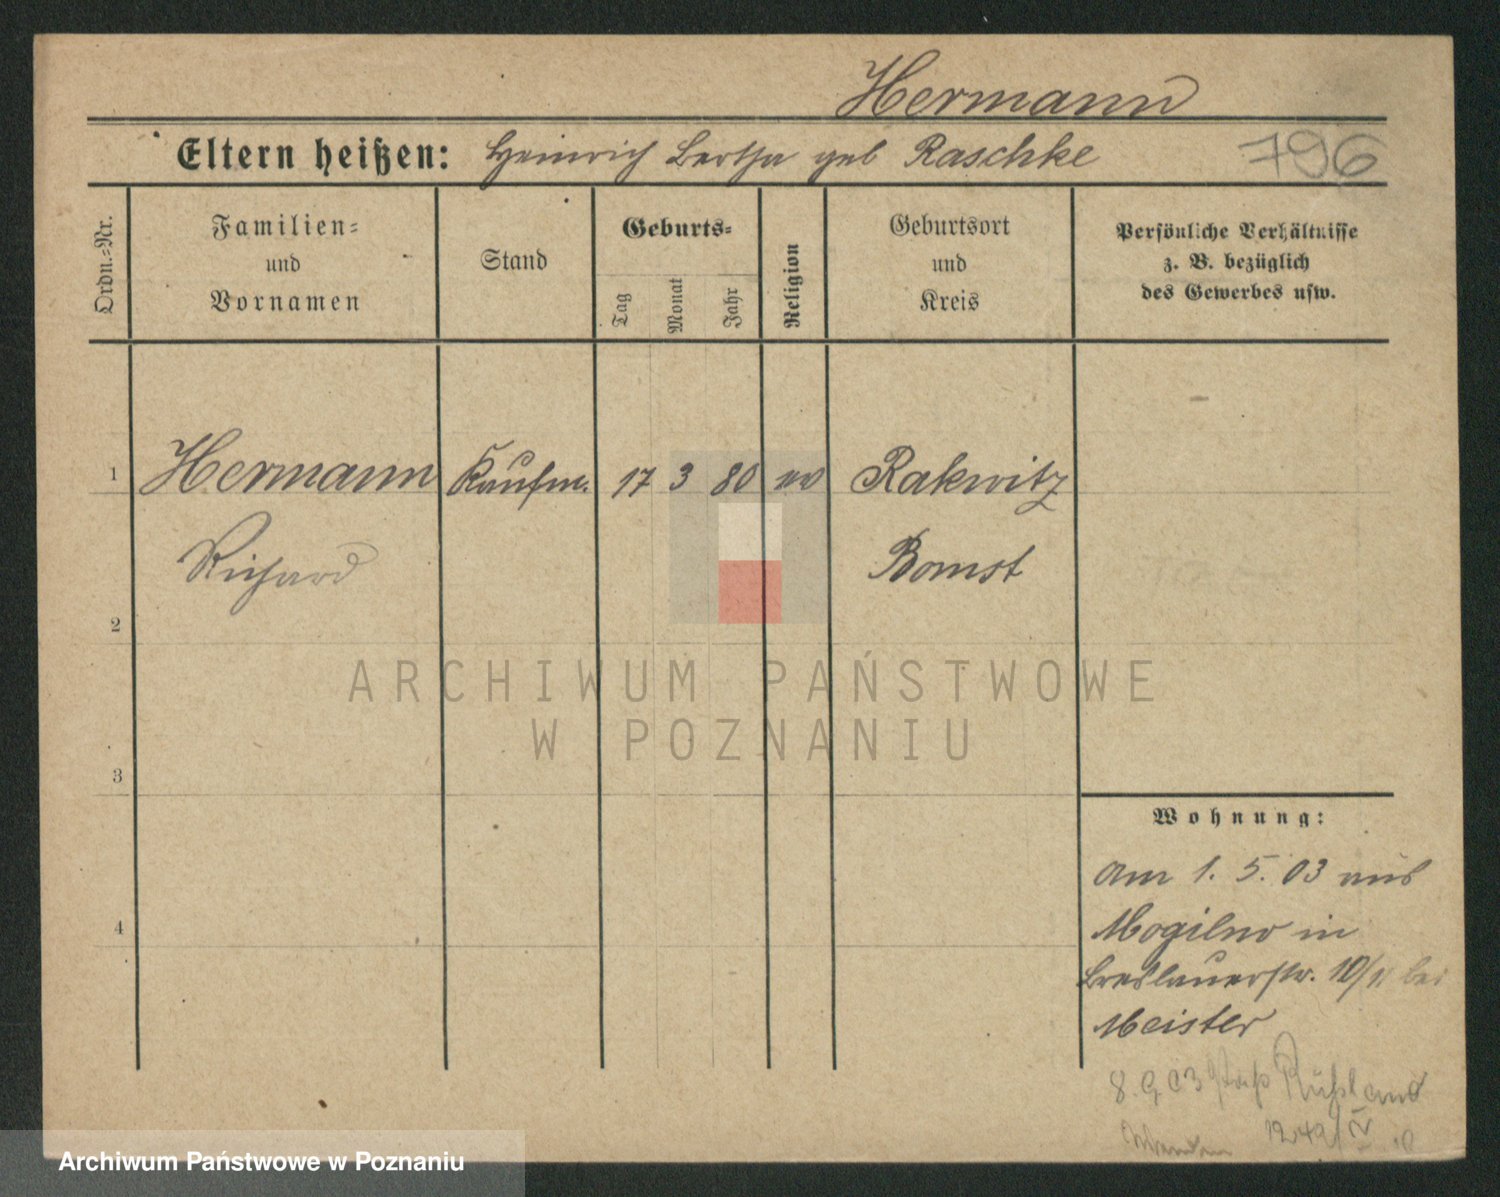 Hermann
Eltern heißen: Heinrich Bertha geb Raschke
796
Ordn.=Nr.
Familien=
und
Vornamen
Stand
Geburts=
Tag
Monat
Jahr
Religion
Geburtsort
und
Kreis
Persönliche Verhältnisse
z. B. bezüglich
des Gewerbes usw.
1 Hermann Kaufm. 17 3 80 ev Rakwitz
Richard Bomst
2
3
4
ARCHIWUM PAŃSTWOWE
W POZNANIU
Wohnung:
am 1. 5. 03 aus
Mogilno in
Breslauerstr. 10/11 bei
Meister
8. 9 03 Rußland
Archiwum Państwowe w Poznaniu